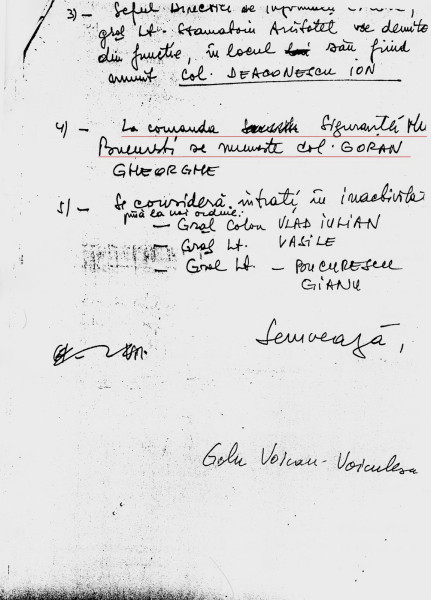 3) — Șeful Direcției de Informații
gral Lt. Stamatoiu Aristotel se demite
din funcție, în locul său fiind
numit col. DEACONESCU ION
4) — La comanda Siguranță Mu
București se numește col. GORAN
GHEORGHE
5) — Se consideră intrați în inactivitate
pînă la noi ordine:
— Gral Colon VLAD IULIAN
— Gral Lt. VASILE
— Gral Lt. — BUCURESCU
GIANU
Semnează,
Gelu Voican-Voiculescu